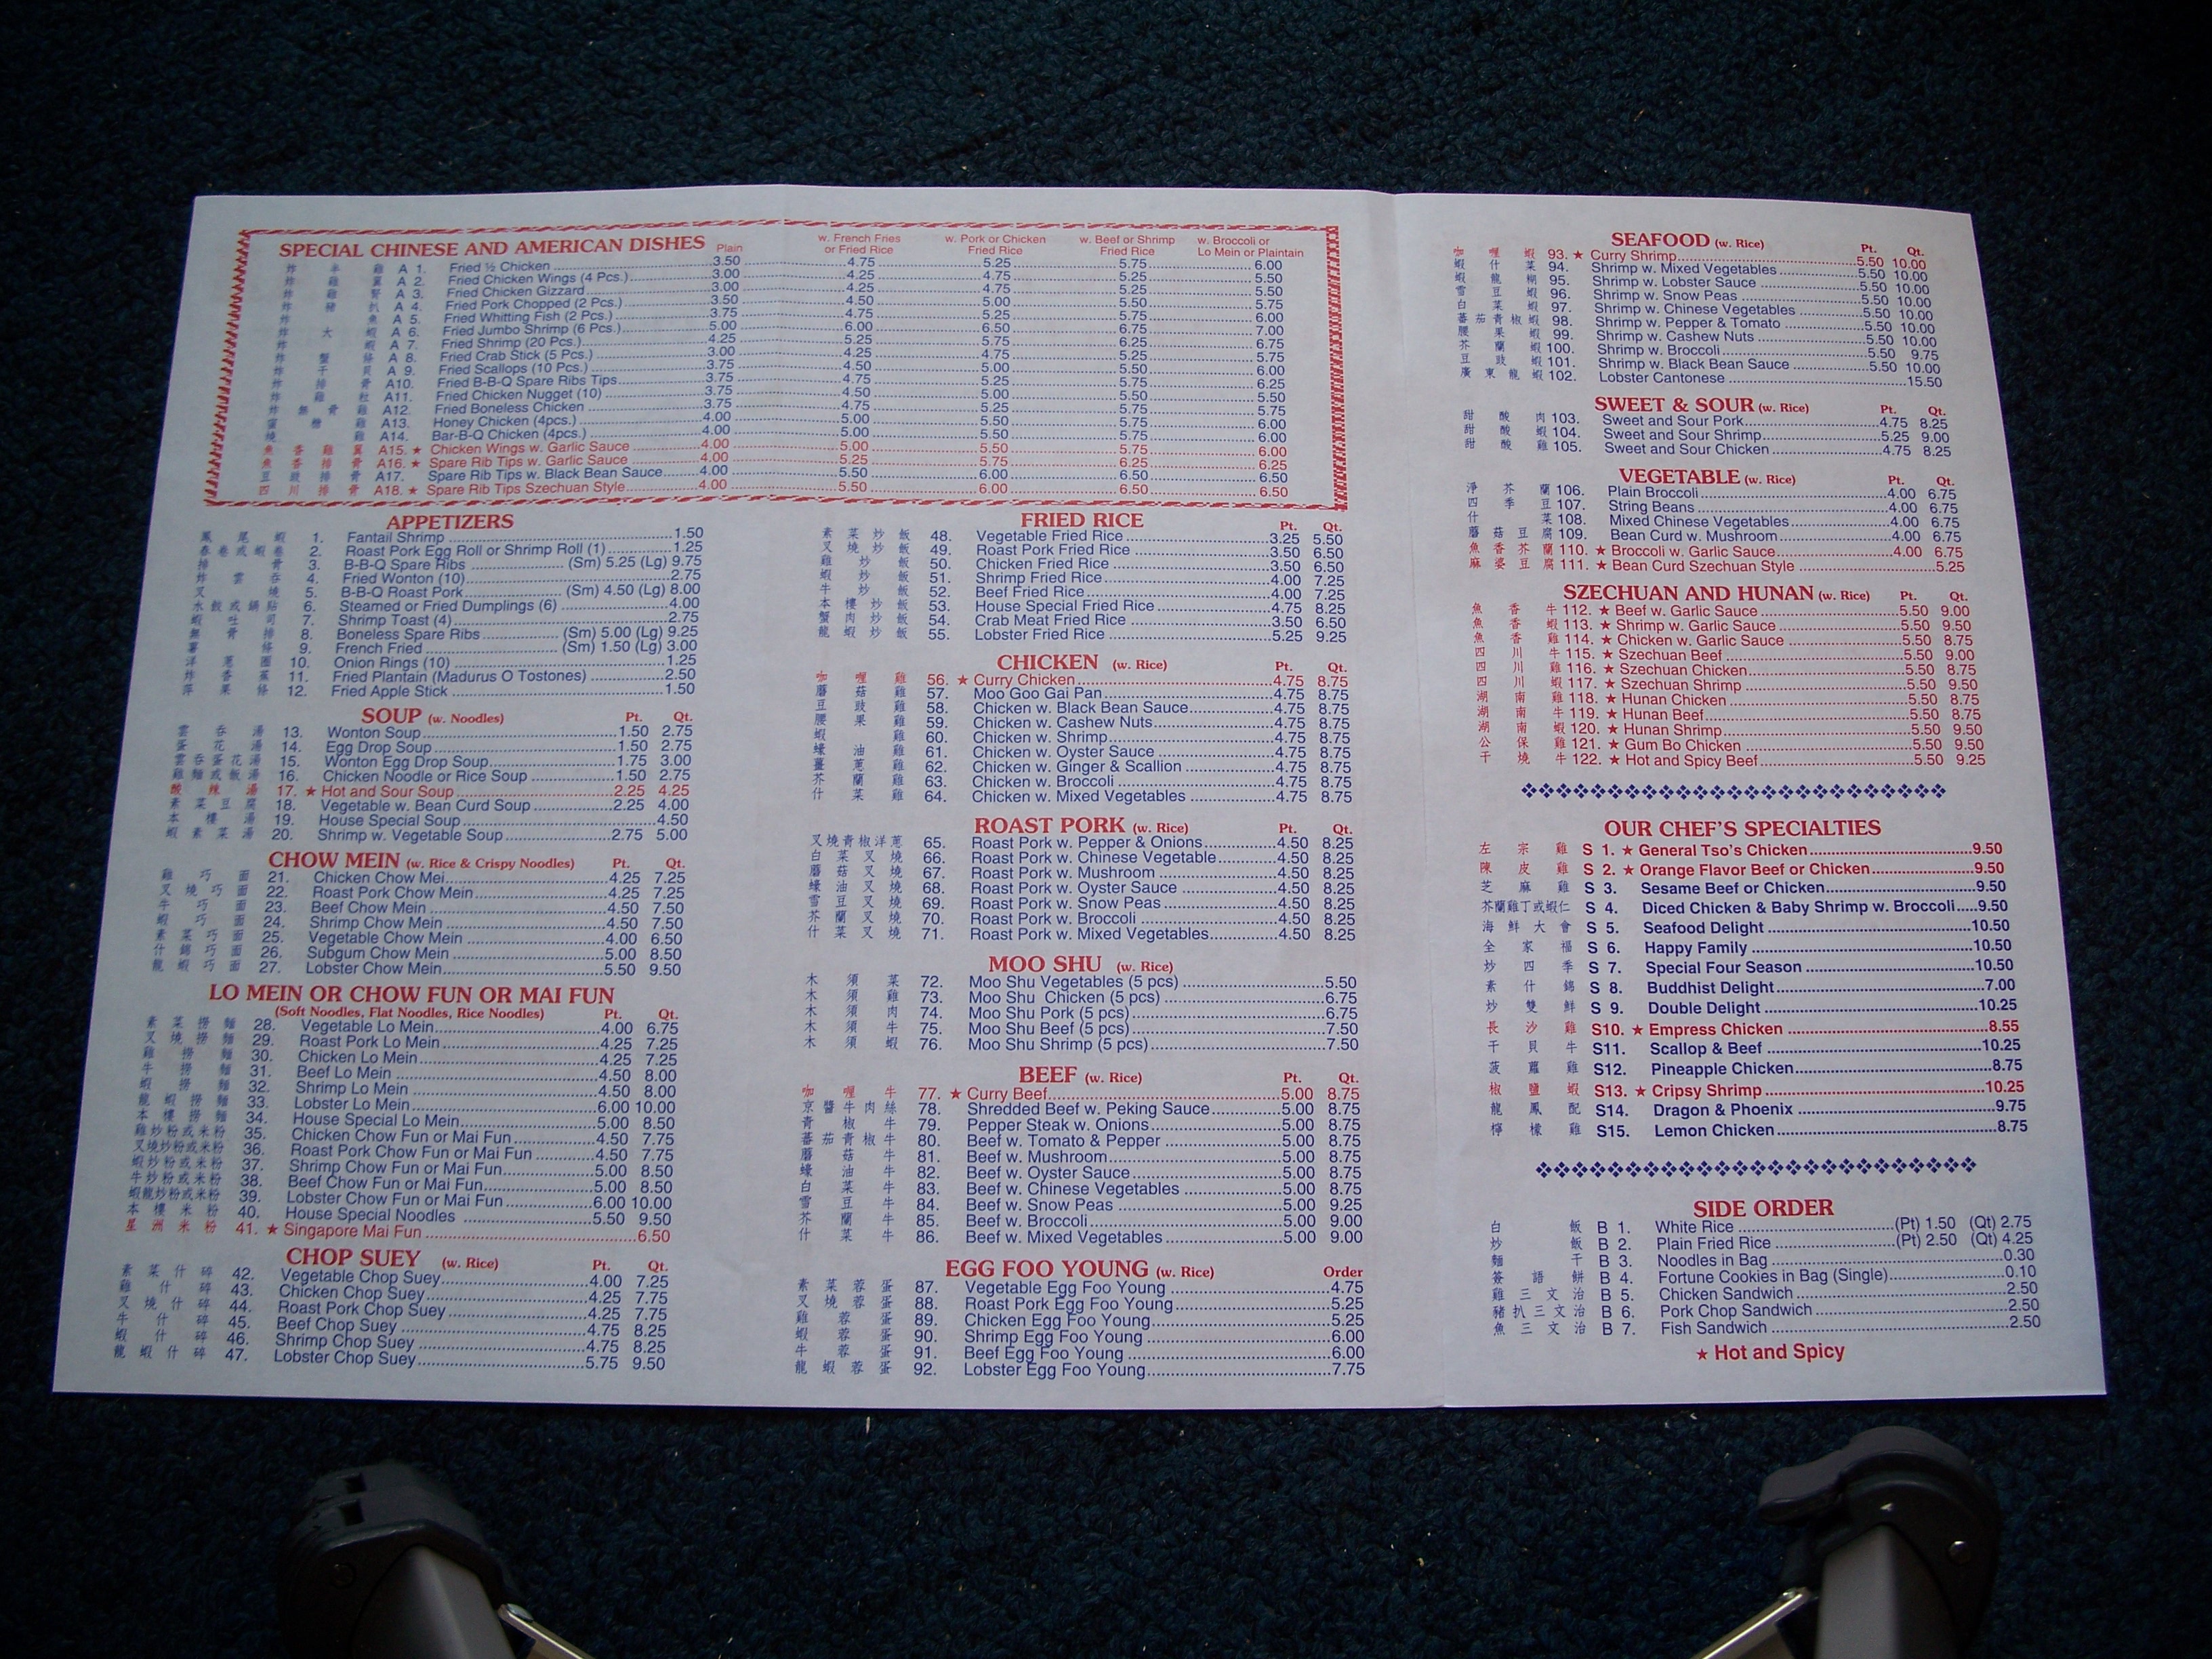 SPECIAL CHINESE AND AMERICAN DISHES Plain w. French Fries or Fried Rice w. Pork or Chicken Fried Rice w. Beef or Shrimp Fried Rice w. Broccoli or Lo Mein or Plaintain
炸半雞 A 1. Fried ½ Chicken 3.50 4.75 5.25 5.75 6.00
炸雞翼 A 2. Fried Chicken Wings (4 Pcs.) 3.00 4.25 4.75 5.25 5.50
炸雞腎 A 3. Fried Chicken Gizzard 3.00 4.25 4.75 5.25 5.50
炸豬扒 A 4. Fried Pork Chopped (2 Pcs.) 3.50 4.50 5.00 5.50 5.75
炸魚 A 5. Fried Whitting Fish (2 Pcs.) 3.75 4.75 5.25 5.75 6.00
炸大蝦 A 6. Fried Jumbo Shrimp (6 Pcs.) 5.00 6.00 6.50 6.75 7.00
炸蝦 A 7. Fried Shrimp (20 Pcs.) 4.25 5.25 5.75 6.25 6.75
炸蟹條 A 8. Fried Crab Stick (5 Pcs.) 3.00 4.25 4.75 5.25 5.75
炸干貝 A 9. Fried Scallops (10 Pcs.) 3.75 4.50 5.00 5.50 6.00
炸排骨 A10. Fried B-B-Q Spare Ribs Tips 3.75 4.75 5.25 5.75 6.25
炸雞 A11. Fried Chicken Nugget (10) 3.75 4.50 5.00 5.50
炸無骨雞 A12. Fried Boneless Chicken 3.75 4.75 5.25 5.75 6.00
雞 A13. Honey Chicken (4pcs.) 4.00 5.00 5.50 5.75 6.00
燒雞 A14. Bar-B-Q Chicken (4pcs.) 4.00 5.00 5.50 5.75 6.00
魚香雞翼 A15. ★ Chicken Wings w. Garlic Sauce 4.00 5.00 5.50 5.75 6.00
魚香排骨 A16. ★ Spare Rib Tips w. Garlic Sauce 4.00 5.25 5.75 6.25 6.25
豆豉排骨 A17. Spare Rib Tips w. Black Bean Sauce 4.00 5.50 6.00 6.50 6.50
四川排骨 A18. ★ Spare Rib Tips Szechuan Style 4.00 5.50 6.00 6.50 6.50
APPETIZERS
鳳尾蝦 1. Fantail Shrimp 1.50
春卷或蝦卷 2. Roast Pork Egg Roll or Shrimp Roll (1) 1.25
排骨 3. B-B-Q Spare Ribs (Sm) 5.25 (Lg) 9.75
炸雲吞 4. Fried Wonton (10) 2.75
叉燒 5. B-B-Q Roast Pork (Sm) 4.50 (Lg) 8.00
水餃或鍋貼 6. Steamed or Fried Dumplings (6) 4.00
蝦吐司 7. Shrimp Toast (4) 2.75
無骨排 8. Boneless Spare Ribs (Sm) 5.00 (Lg) 9.25
薯條 9. French Fried (Sm) 1.50 (Lg) 3.00
洋蔥圈 10. Onion Rings (10) 1.25
炸香蕉 11. Fried Plantain (Madurus O Tostones) 2.50
萍果條 12. Fried Apple Stick 1.50
SOUP (w. Noodles) Pt. Qt.
雲吞湯 13. Wonton Soup 1.50 2.75
蛋花湯 14. Egg Drop Soup 1.50 2.75
雲吞蛋花湯 15. Wonton Egg Drop Soup 1.75 3.00
雞麵或飯湯 16. Chicken Noodle or Rice Soup 1.50 2.75
酸辣湯 17. ★ Hot and Sour Soup 2.25 4.25
素菜豆腐 18. Vegetable w. Bean Curd Soup 2.25 4.00
本樓湯 19. House Special Soup 4.50
蝦素菜湯 20. Shrimp w. Vegetable Soup 2.75 5.00
CHOW MEIN (w. Rice & Crispy Noodles) Pt. Qt.
雞巧面 21. Chicken Chow Mei 4.25 7.25
叉燒巧面 22. Roast Pork Chow Mein 4.25 7.25
牛巧面 23. Beef Chow Mein 4.50 7.50
蝦巧面 24. Shrimp Chow Mein 4.50 7.50
素菜巧面 25. Vegetable Chow Mein 4.00 6.50
什錦巧面 26. Subgum Chow Mein 5.00 8.50
龍蝦巧面 27. Lobster Chow Mein 5.50 9.50
LO MEIN OR CHOW FUN OR MAI FUN
(Soft Noodles, Flat Noodles, Rice Noodles) Pt. Qt.
素菜撈麵 28. Vegetable Lo Mein 4.00 6.75
叉燒撈麵 29. Roast Pork Lo Mein 4.25 7.25
雞撈麵 30. Chicken Lo Mein 4.25 7.25
牛撈麵 31. Beef Lo Mein 4.50 8.00
蝦撈麵 32. Shrimp Lo Mein 4.50 8.00
龍蝦撈麵 33. Lobster Lo Mein 6.00 10.00
本樓撈麵 34. House Special Lo Mein 5.00 8.50
雞炒粉或米粉 35. Chicken Chow Fun or Mai Fun 4.50 7.75
叉燒炒粉或米粉 36. Roast Pork Chow Fun or Mai Fun 4.50 7.75
蝦炒粉或米粉 37. Shrimp Chow Fun or Mai Fun 5.00 8.50
牛炒粉或米粉 38. Beef Chow Fun or Mai Fun 5.00 8.50
蝦龍炒粉或米粉 39. Lobster Chow Fun or Mai Fun 6.00 10.00
本樓米粉 40. House Special Noodles 5.50 9.50
星洲米粉 41. ★ Singapore Mai Fun 6.50
CHOP SUEY (w. Rice) Pt. Qt.
素菜什碎 42. Vegetable Chop Suey 4.00 7.25
雞什碎 43. Chicken Chop Suey 4.25 7.75
叉燒什碎 44. Roast Pork Chop Suey 4.25 7.75
牛什碎 45. Beef Chop Suey 4.75 8.25
蝦什碎 46. Shrimp Chop Suey 4.75 8.25
龍蝦什碎 47. Lobster Chop Suey 5.75 9.50
FRIED RICE Pt. Qt.
素菜炒飯 48. Vegetable Fried Rice 3.25 5.50
叉燒炒飯 49. Roast Pork Fried Rice 3.50 6.50
雞炒飯 50. Chicken Fried Rice 3.50 6.50
蝦炒飯 51. Shrimp Fried Rice 4.00 7.25
牛炒飯 52. Beef Fried Rice 4.00 7.25
本樓炒飯 53. House Special Fried Rice 4.75 8.25
蟹肉炒飯 54. Crab Meat Fried Rice 3.50 6.50
龍蝦炒飯 55. Lobster Fried Rice 5.25 9.25
CHICKEN (w. Rice) Pt. Qt.
咖喱雞 56. ★ Curry Chicken 4.75 8.75
蘑菇雞 57. Moo Goo Gai Pan 4.75 8.75
豆豉雞 58. Chicken w. Black Bean Sauce 4.75 8.75
腰果雞 59. Chicken w. Cashew Nuts 4.75 8.75
蝦雞 60. Chicken w. Shrimp 4.75 8.75
蠔油雞 61. Chicken w. Oyster Sauce 4.75 8.75
薑蔥雞 62. Chicken w. Ginger & Scallion 4.75 8.75
芥蘭雞 63. Chicken w. Broccoli 4.75 8.75
什菜雞 64. Chicken w. Mixed Vegetables 4.75 8.75
ROAST PORK (w. Rice) Pt. Qt.
叉燒青椒洋蔥 65. Roast Pork w. Pepper & Onions 4.50 8.25
白菜叉燒 66. Roast Pork w. Chinese Vegetable 4.50 8.25
蘑菇叉燒 67. Roast Pork w. Mushroom 4.50 8.25
蠔油叉燒 68. Roast Pork w. Oyster Sauce 4.50 8.25
雪豆叉燒 69. Roast Pork w. Snow Peas 4.50 8.25
芥蘭叉燒 70. Roast Pork w. Broccoli 4.50 8.25
什菜叉燒 71. Roast Pork w. Mixed Vegetables 4.50 8.25
MOO SHU (w. Rice)
木須菜 72. Moo Shu Vegetables (5 pcs) 5.50
木須雞 73. Moo Shu Chicken (5 pcs) 6.75
木須肉 74. Moo Shu Pork (5 pcs) 6.75
木須牛 75. Moo Shu Beef (5 pcs) 7.50
木須蝦 76. Moo Shu Shrimp (5 pcs) 7.50
BEEF (w. Rice) Pt. Qt.
咖喱牛 77. ★ Curry Beef 5.00 8.75
京醬牛肉絲 78. Shredded Beef w. Peking Sauce 5.00 8.75
青椒牛 79. Pepper Steak w. Onions 5.00 8.75
蕃茄青椒牛 80. Beef w. Tomato & Pepper 5.00 8.75
蘑菇牛 81. Beef w. Mushroom 5.00 8.75
蠔油牛 82. Beef w. Oyster Sauce 5.00 8.75
白菜牛 83. Beef w. Chinese Vegetables 5.00 8.75
雪豆牛 84. Beef w. Snow Peas 5.00 9.25
芥蘭牛 85. Beef w. Broccoli 5.00 9.00
什菜牛 86. Beef w. Mixed Vegetables 5.00 9.00
EGG FOO YOUNG (w. Rice) Order
素菜蓉蛋 87. Vegetable Egg Foo Young 4.75
叉燒蓉蛋 88. Roast Pork Egg Foo Young 5.25
雞蓉蛋 89. Chicken Egg Foo Young 5.25
蝦蓉蛋 90. Shrimp Egg Foo Young 6.00
牛蓉蛋 91. Beef Egg Foo Young 6.00
龍蝦蓉蛋 92. Lobster Egg Foo Young 7.75
SEAFOOD (w. Rice) Pt. Qt.
咖喱蝦 93. ★ Curry Shrimp 5.50 10.00
蝦什菜 94. Shrimp w. Mixed Vegetables 5.50 10.00
蝦龍糊 95. Shrimp w. Lobster Sauce 5.50 10.00
雪豆蝦 96. Shrimp w. Snow Peas 5.50 10.00
白菜蝦 97. Shrimp w. Chinese Vegetables 5.50 10.00
蕃茄青椒蝦 98. Shrimp w. Pepper & Tomato 5.50 10.00
腰果蝦 99. Shrimp w. Cashew Nuts 5.50 10.00
芥蘭蝦 100. Shrimp w. Broccoli 5.50 9.75
豆豉蝦 101. Shrimp w. Black Bean Sauce 5.50 10.00
廣東龍蝦 102. Lobster Cantonese 15.50
SWEET & SOUR (w. Rice) Pt. Qt.
甜酸肉 103. Sweet and Sour Pork 4.75 8.25
甜酸蝦 104. Sweet and Sour Shrimp 5.25 9.00
甜酸雞 105. Sweet and Sour Chicken 4.75 8.25
VEGETABLE (w. Rice) Pt. Qt.
淨芥蘭 106. Plain Broccoli 4.00 6.75
四季豆 107. String Beans 4.00 6.75
什菜 108. Mixed Chinese Vegetables 4.00 6.75
蘑菇豆腐 109. Bean Curd w. Mushroom 4.00 6.75
魚香芥蘭 110. ★ Broccoli w. Garlic Sauce 4.00 6.75
麻婆豆腐 111. ★ Bean Curd Szechuan Style 5.25
SZECHUAN AND HUNAN (w. Rice) Pt. Qt.
魚香牛 112. ★ Beef w. Garlic Sauce 5.50 9.00
魚香蝦 113. ★ Shrimp w. Garlic Sauce 5.50 9.50
魚香雞 114. ★ Chicken w. Garlic Sauce 5.50 8.75
四川牛 115. ★ Szechuan Beef 5.50 9.00
四川雞 116. ★ Szechuan Chicken 5.50 8.75
四川蝦 117. ★ Szechuan Shrimp 5.50 9.50
湖南雞 118. ★ Hunan Chicken 5.50 8.75
湖南牛 119. ★ Hunan Beef 5.50 8.75
湖南蝦 120. ★ Hunan Shrimp 5.50 9.50
公保雞 121. ★ Gum Bo Chicken 5.50 9.50
干燒牛 122. ★ Hot and Spicy Beef 5.50 9.25
OUR CHEF'S SPECIALTIES
左宗雞 S 1. ★ General Tso's Chicken 9.50
陳皮雞 S 2. ★ Orange Flavor Beef or Chicken 9.50
芝麻雞 S 3. Sesame Beef or Chicken 9.50
芥蘭雞丁或蝦仁 S 4. Diced Chicken & Baby Shrimp w. Broccoli 9.50
海鮮大會 S 5. Seafood Delight 10.50
全家福 S 6. Happy Family 10.50
炒四季 S 7. Special Four Season 10.50
素什錦 S 8. Buddhist Delight 7.00
炒雙鮮 S 9. Double Delight 10.25
長沙雞 S10. ★ Empress Chicken 8.55
干貝牛 S11. Scallop & Beef 10.25
菠蘿雞 S12. Pineapple Chicken 8.75
椒鹽蝦 S13. ★ Cripsy Shrimp 10.25
龍鳳配 S14. Dragon & Phoenix 9.75
檸檬雞 S15. Lemon Chicken 8.75
SIDE ORDER
白飯 B 1. White Rice (Pt) 1.50 (Qt) 2.75
炒飯 B 2. Plain Fried Rice (Pt) 2.50 (Qt) 4.25
麵干 B 3. Noodles in Bag 0.30
簽語餅 B 4. Fortune Cookies in Bag (Single) 0.10
雞三文治 B 5. Chicken Sandwich 2.50
豬扒三文治 B 6. Pork Chop Sandwich 2.50
魚三文治 B 7. Fish Sandwich 2.50
★ Hot and Spicy